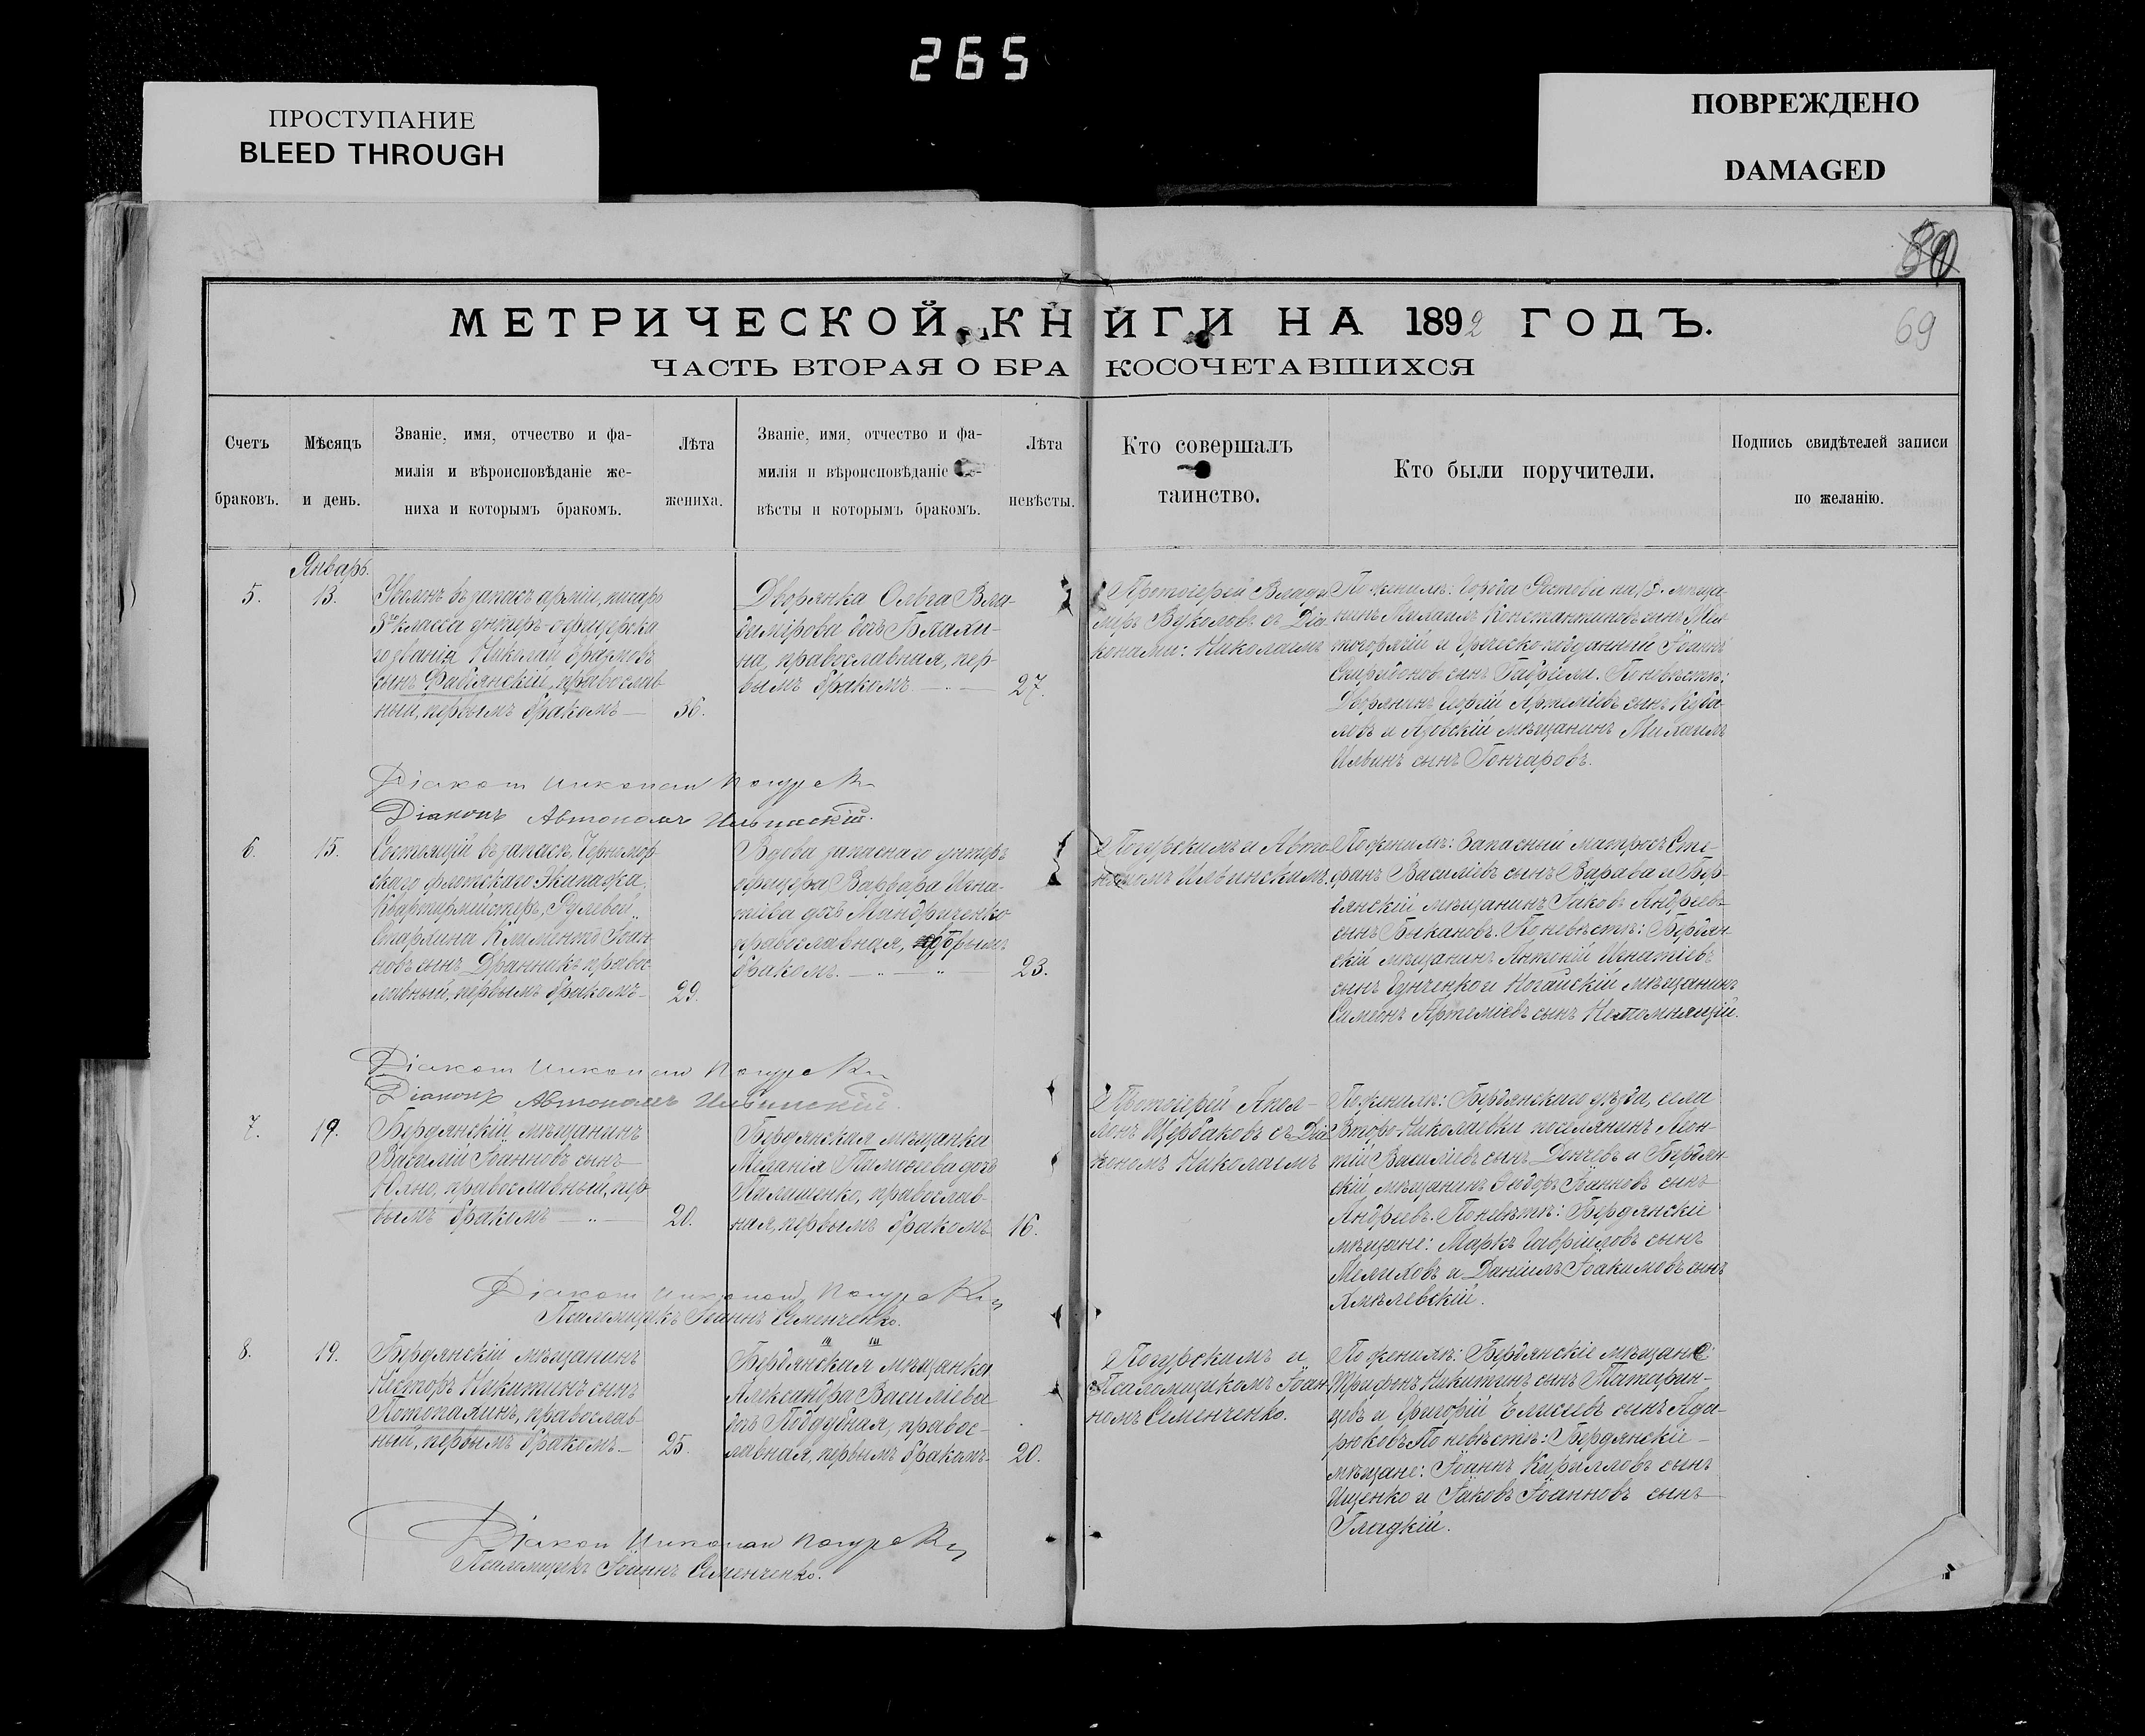 265
ПРОСТУПАНИЕ
BLEED THROUGH
ПОВРЕЖДЕНО
DAMAGED
69
МЕТРИЧЕСКОЙ КНИГИ НА 1892 ГОДЪ.
ЧАСТЬ ВТОРАЯ О БРАКОСОЧЕТАВШИХСЯ
Счетъ браковъ.
Мѣсяцъ и день.
Званіе, имя, отчество и фа-
милія и вѣроисповѣданіе же-
ниха и которымъ бракомъ.
Лѣта жениха.
Званіе, имя, отчество и фа-
милія и вѣроисповѣданіе не-
вѣсты и которымъ бракомъ.
Лѣта невѣсты.
Кто совершалъ
таинство.
Кто были поручители.
Подпись свидѣтелей записи
по желанію.
Январь.
5.
13.
Уволенъ въ запасъ арміи, писарь
класса унтеръ-офицерска
го званія Николай
сынъ православ
ный, первымъ бракомъ
36.
Дворянка Ольга Вла-
димірова дочь Блахи-
на, православная, пер-
вымъ бракомъ
27.
Протоіерей Влади
міръ Вуколовъ съ Діа
конами: Николаемъ
По женихѣ: города Ростова на Д. мѣща-
нинъ Михаилъ Константиновъ сынъ
и Греческоподданный Іоаннъ
Спиридоновъ сынъ. По невѣстѣ:
Дворянинъ Сергій Артеміевъ сынъ
и Азовскій мѣщанинъ Михаилъ
Ильинъ сынъ Гончаровъ.
Діаконъ Николай Погурскій
Діаконъ Автономъ Ильинскій.
6.
15.
Состоящій въ запасѣ Черномор
скаго флотскаго Экипажа,
Квартирмистръ, Рулевой
Старшина Климентъ Іоан
новъ сынъ Дранникъ правос
лавный, первымъ бракомъ
29.
Вдова запаснаго унтеръ
офицера Варвара Игна-
тіева дочь Мандриченко
православная, вторымъ
бракомъ
23.
Погурскимъ и Авто
номомъ Ильинскимъ.
По женихѣ: Запасный матросъ Сте-
фанъ Василіевъ сынъ Варава и Бер-
дянскій мѣщанинъ Іаковъ Андреевъ
сынъ Быкановъ. По невѣстѣ: Бердян
скій мѣщанинъ Антоній Игнатіевъ
сынъ и Ногайскій мѣщанинъ
Симеонъ Артеміевъ сынъ Непомнящій.
Діаконъ Николай Погурскій
Діаконъ Автономъ Ильинскій.
7.
19.
Бердянскій мѣщанинъ
Василій Іоанновъ сынъ
Юхно, православный, пер
вымъ бракомъ
20.
Бердянская мѣщанка
Меланія Тимофеева дочь
православ-
ная, первымъ бракомъ
16.
Протоіерей Апол-
лонъ Щербаковъ съ Діа
кономъ Николаемъ
По женихѣ: Бердянскаго уѣзда, села
Второ-Николаевки поселянинъ Леон-
тій Василіевъ сынъ Дончевъ и Бердян-
скій мѣщанинъ Сидоръ Іоанновъ сынъ
Андреевъ. По невѣстѣ: Бердянскіе
мѣщане: Маркъ Гавріиловъ сынъ
Мелиховъ и Даніилъ Іоакимовъ сынъ
Хмѣлевскій.
Діаконъ Николай Погурскій
Псаломщикъ Іоаннъ Семенченко.
8.
19.
Бердянскій мѣщанинъ
Несторъ Никитинъ сынъ
Потопахинъ, православ
ный, первымъ бракомъ
25.
Бердянская мѣщанка
Александра Василіева
дочь Поддубная, правос-
лавная, первымъ бракомъ
20.
Погурскимъ и
Псаломщикомъ Іоан
номъ Семенченко.
По женихѣ: Бердянскіе мѣщане:
Трифонъ Никитинъ сынъ Татарин-
цевъ и Григорій Елисеевъ сынъ
По невѣстѣ: Бердянскіе
мѣщане: Іоаннъ Кирилловъ сынъ
Ищенко и Іаковъ Іоанновъ сынъ
Гладкій.
Діаконъ Николай Погурскій
Псаломщикъ Іоаннъ Семенченко.